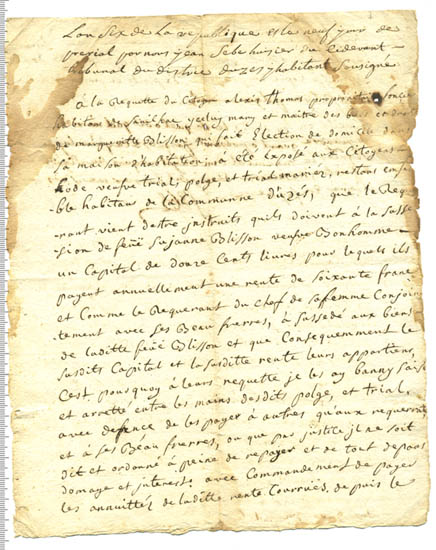 L'an six de la republique est le neuf jour de
prerial par nous jean Sebe huisier du cidevant
tribunal du districe duzes y habitant Sousigne
à la Requette du Citoyen alexis Thomas proprietaire foncier
habitant de yceluy mary et maitre des biens et droits
de margueritte Blisson qui fait Election de domicile dans
sa maison d'habitation a été exposé aux Citoyens
veufve trial, polge, et trial manier, restons
habitans de la Commune duzés, que le Reque
rant vient destre jnstruits quils doivent à la Susse
sion de feüe Suzanne Blisson veufve Bonhomme
un Capital de douze Cents livres pour lequels ils
payent annuellement une rente de soixante franc
et Comme le Requerant du chef de safemme Conjoin
tement avec Ses Beau frerres, à Sassedé aux biens
de laditte feüe Blisson et que Consequemment le
Susdits Capital et la Susditte rente leurs apartient,
Cest pourquoy à leurs requette je les ay banny Saisi
et arretté entre les mains desdits polge, et trial,
avec defence de les payer à autres qu'aux requerants
et à Ses Beau frerres, ou que par justice jl ne soit
dit et ordonné à peine de repayer et de tout depans
domage et jnterest. avec Commandement de payer
les annuittés de laditte rente Courrües, de puis le